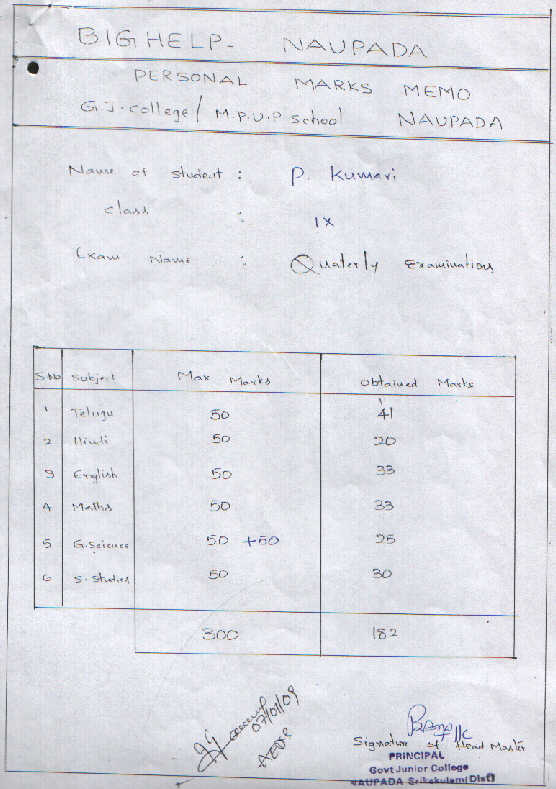 BIG HELP- NAUPADA
PERSONAL MARKS MEMO
G.J.college/ M.P.U.P school NAUPADA
Name of student : P. Kumari
class : IX
Exam Name : Quaterly Examinations
S.No Subject Max Marks obtained Marks
1 Telugu 50 41
2 Hindi 50 20
3 English 50 33
4 Maths 50 33
5 G.Science 50 +50 25
6 S.Studies 50 30
300 182
07/01/09
Signature of Head Master
PRINCIPAL
Govt Junior College
NAUPADA Srikakulam Dist